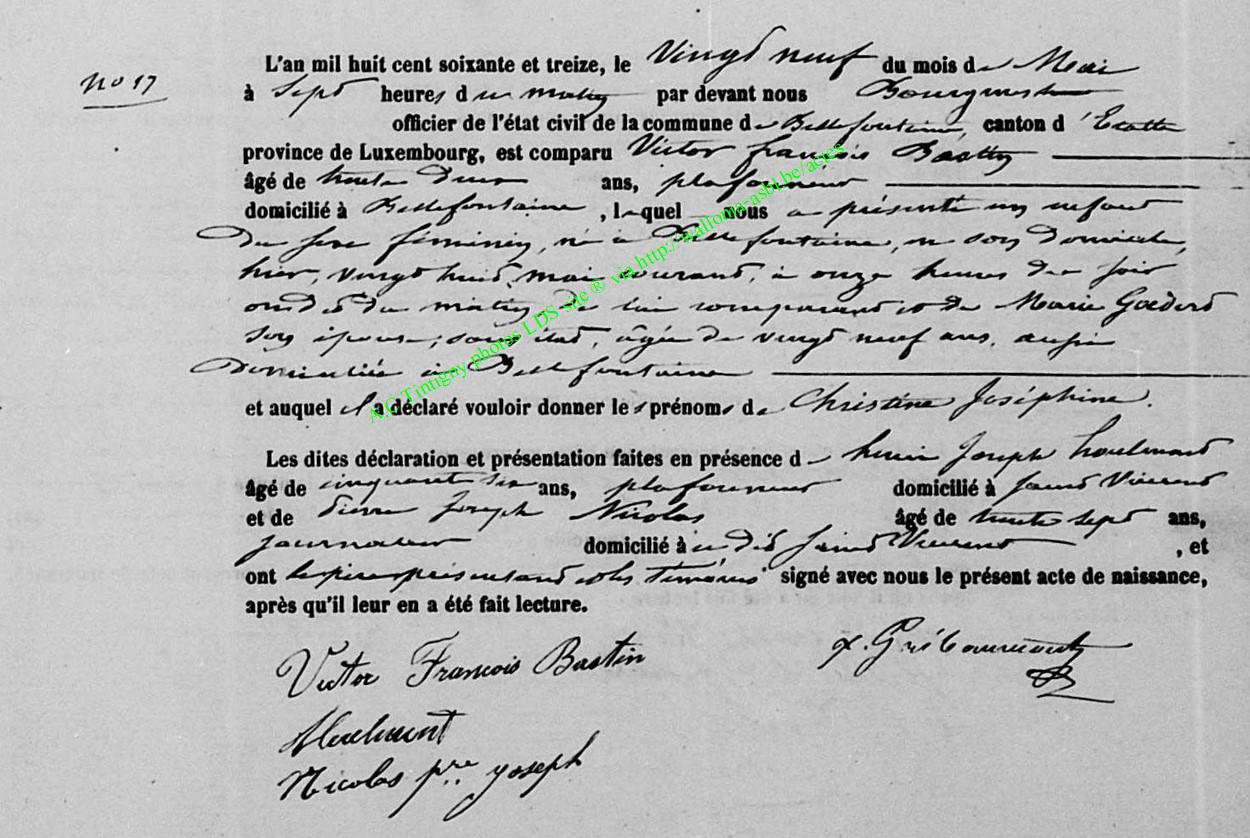 No 17
L'an mil huit cent soixante et treize, le Vingt neuf du mois de Mai
à Sept heures du matin par devant nous Bourgmestre
officier de l'état civil de la commune de Bellefontaine, canton d'Etalle
province de Luxembourg, est comparu Victor françois Bastin
âgé de trente deux ans, plafonneur
domicilié à Bellefontaine, lequel nous a présenté un enfant
du sexe féminin, né à Bellefontaine, en son domicile,
hier, vingt huit mai courant, à onze heures du soir
de lui comparant et de Marie Godard
son épouse, sans état, âgée de vingt neuf ans, aussi
domiciliée à Bellefontaine
et auquel il a déclaré vouloir donner les prénoms de Christine Joséphine.
Les dites déclaration et présentation faites en présence de Joseph
âgé de cinquante six ans, plafonneur domicilié à Saint Vincent
et de Pierre Joseph Nicolas âgé de trente sept ans,
journalier domicilié à dit Saint Vincent, et
ont le père présentant et les témoins signé avec nous le présent acte de naissance,
après qu'il leur en a été fait lecture.
Victor François Bastin
Nicolas pre joseph
A.G.Tintigny photos LDS site ® via http://wallonia.asbl.be/actes